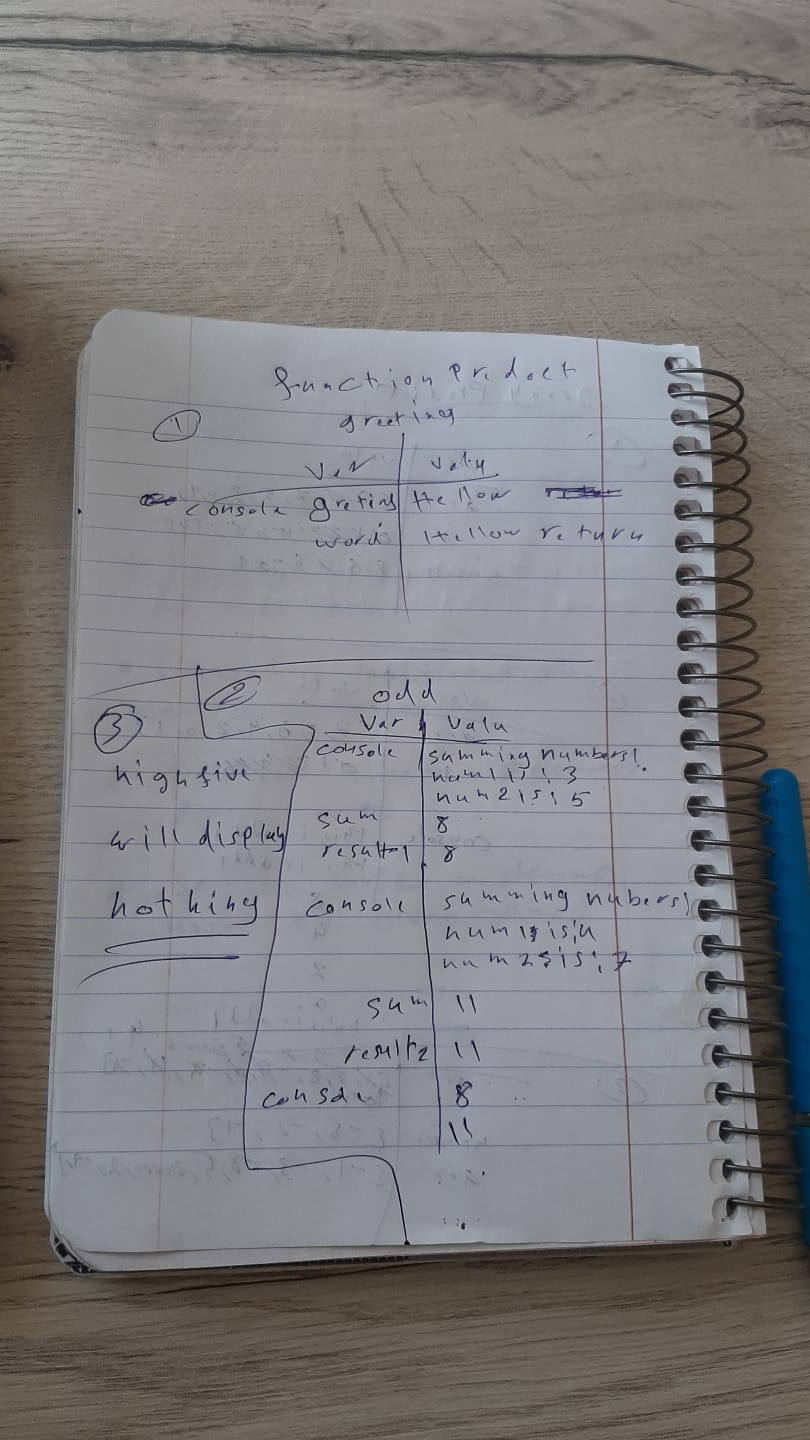 function Predect
① greeting
Var Valu
console greting Hellow
word Hellow return
② odd
Var Valu
console summing numbers!
num1 is: 3
num2 is: 5
sum 8
result1 8
console summing nubers!
num1 is: 4
num2 is: 7
sum 11
result2 11
console 8
11
③
highfive
will display
hothing